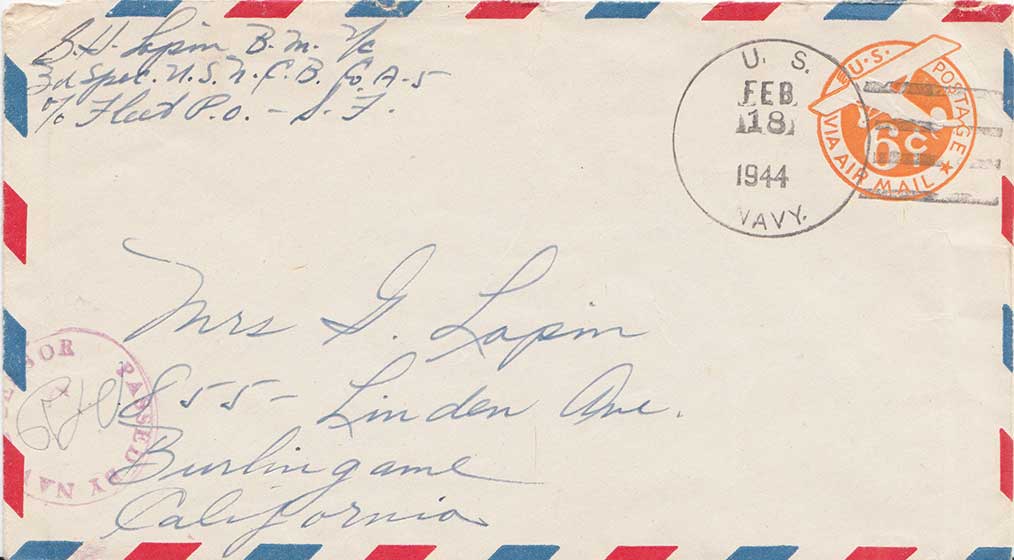 G. H. Lapin B. M. 1/c
3d Spec. U. S. N. C. B. Co. A-5
c/o Fleet P.O. - S. F.
U. S.
FEB
18
1944
NAVY.
U.S. POSTAGE
6¢
VIA AIR MAIL
Mrs G. Lapin
855 - Linden Ave.
Burlingame
California
PASSED BY NAV
SOR